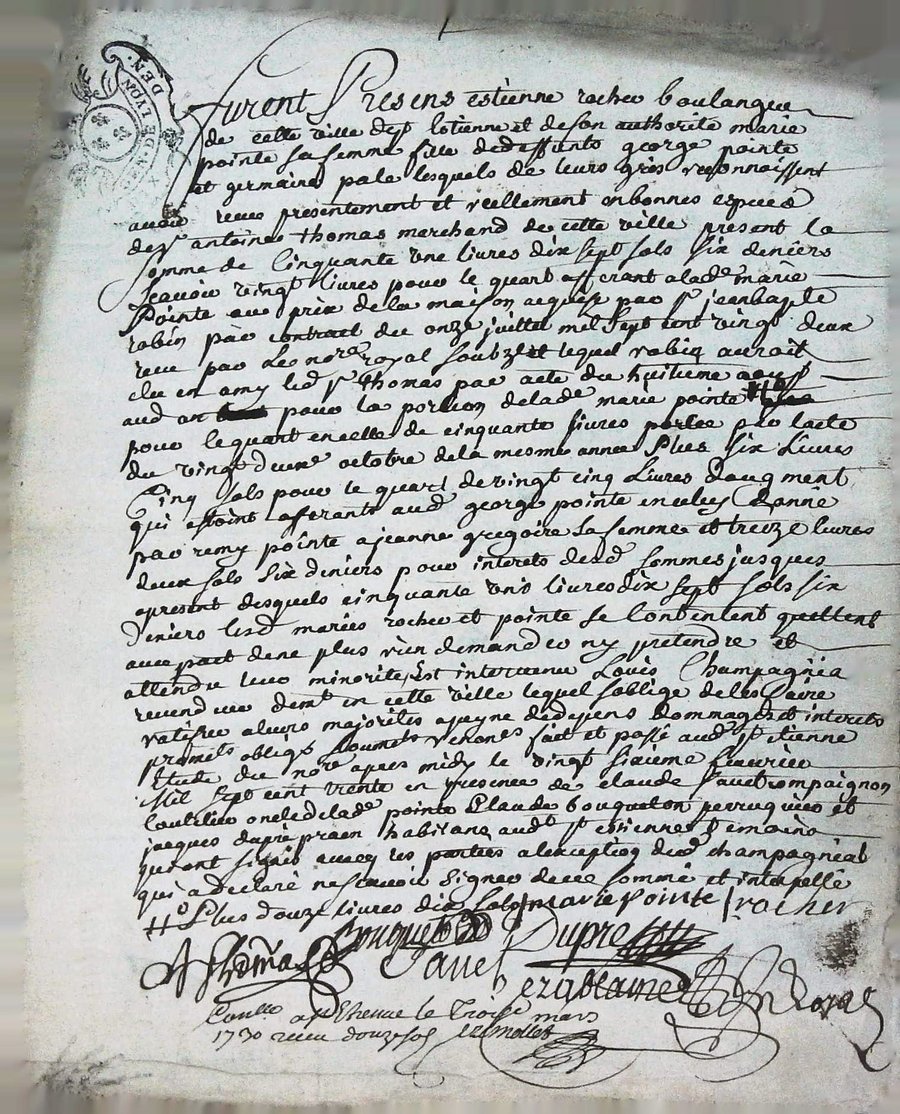 GEN. DE LYON
DEN.
furent Presens estienne rocher boulangue
de cette ville de St Etienne et de son authorité marie
pointe sa femme fille de deffunts george pointe
et germaine pale lesquels de leurs grés reconnoissent
avoir receu presentement et reellement en bonnes espuces
de sr antoine thomas marchand de cette ville present la
somme de Cinquante une livres dix sept sols six deniers
scavoir vingt livres pour le quart afferant a lade marie
Pointe au prix de la maison acquise par sr jean bapte
robin par contract du onze juillet mil sept cent vingt deux
receu par Les nore royal soubzné lequel robin auroit
elu en amy led sr thomas par acte du huitieme
aud an pour la portion de lade marie pointe #o
pour le quart en celle de cinquante livres portée par lacte
du vingt deuxe octobre de la mesme année Plus six Livres
Cinq sols pour le quart de vingt cinq Livres daugment
qui estoint afferants aud george pointe en celuy donné
par remy pointe a jeanne gregoire sa femme et treize livres
deux sols six deniers pour interets desd sommes jusques
apresent desquels cinquante une livres dix sept sols six
deniers lesd mariés rocher et pointe se Contentent quittent
avec pact de ne plus rien demander ny pretendre et
attendu leur minorité Est intervenu Louis Champagnia
revendeur demt en cette ville lequel soblige de les faire
ratifier a leurs majorités a peyne de depens dommages et interets
promets obligé soumets renoncé fait et passé aud St etienne
Etude du nore apres midy le vingt sixieme fevrier
Mil sept cent trente en presence de claude favet compaignon
coutelier oncle de lade pointe Claude bouqueton perruquier et
jacques dupré habitans aud St estienne temoins
qui ont signé avecq les parties a lexception dud champagnial
qui a declaré ne scavoir signer de ce sommé et interpellé
#o Plus douze livres dix sols marie pointe rocher
A Thomas Bouqueton Dupré
favet
Conllé a St Etienne le Troise mars
1730 receu douze sols